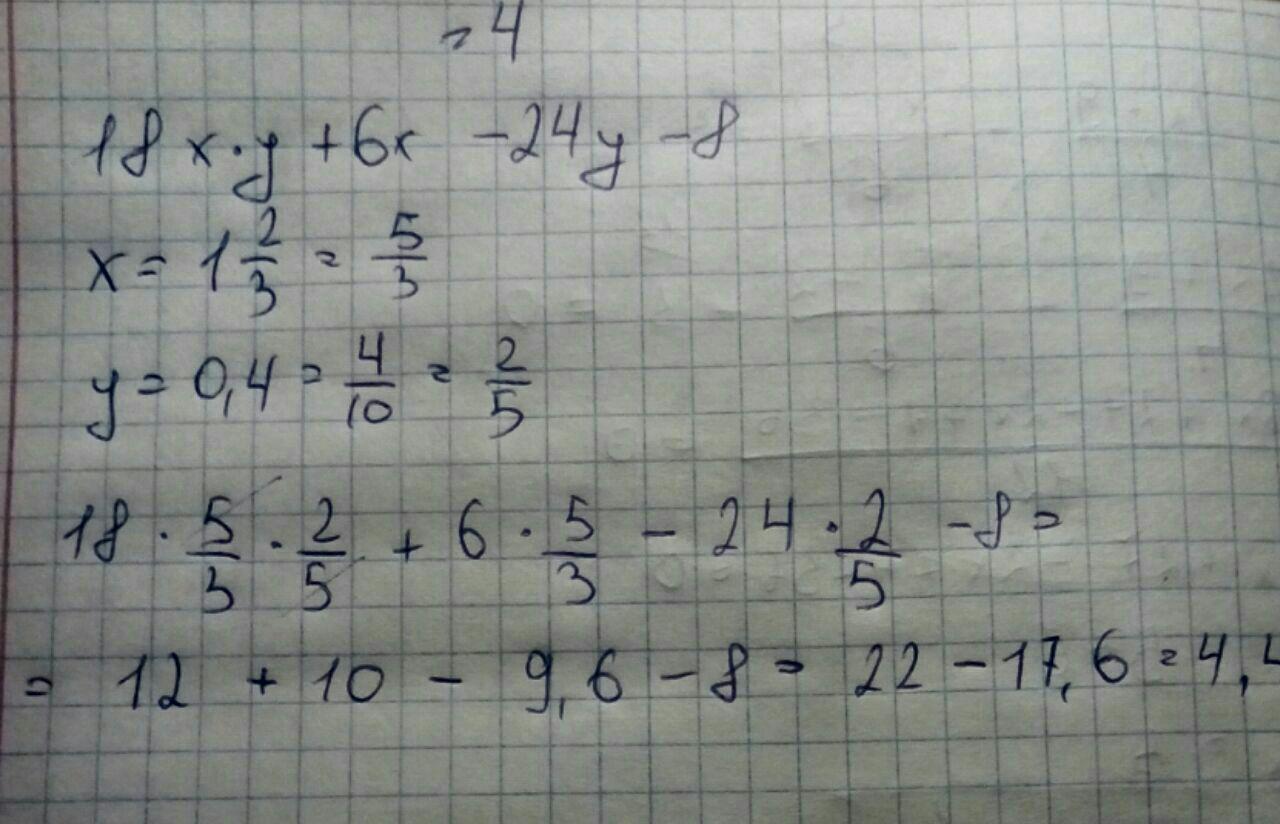 = 4
18 x · y + 6x - 24y - 8
x = 1 2/3 = 5/3
y = 0,4 = 4/10 = 2/5
18 · 5/3 · 2/5 + 6 · 5/3 - 24 · 2/5 - 8 =
= 12 + 10 - 9,6 - 8 = 22 - 17,6 = 4,4